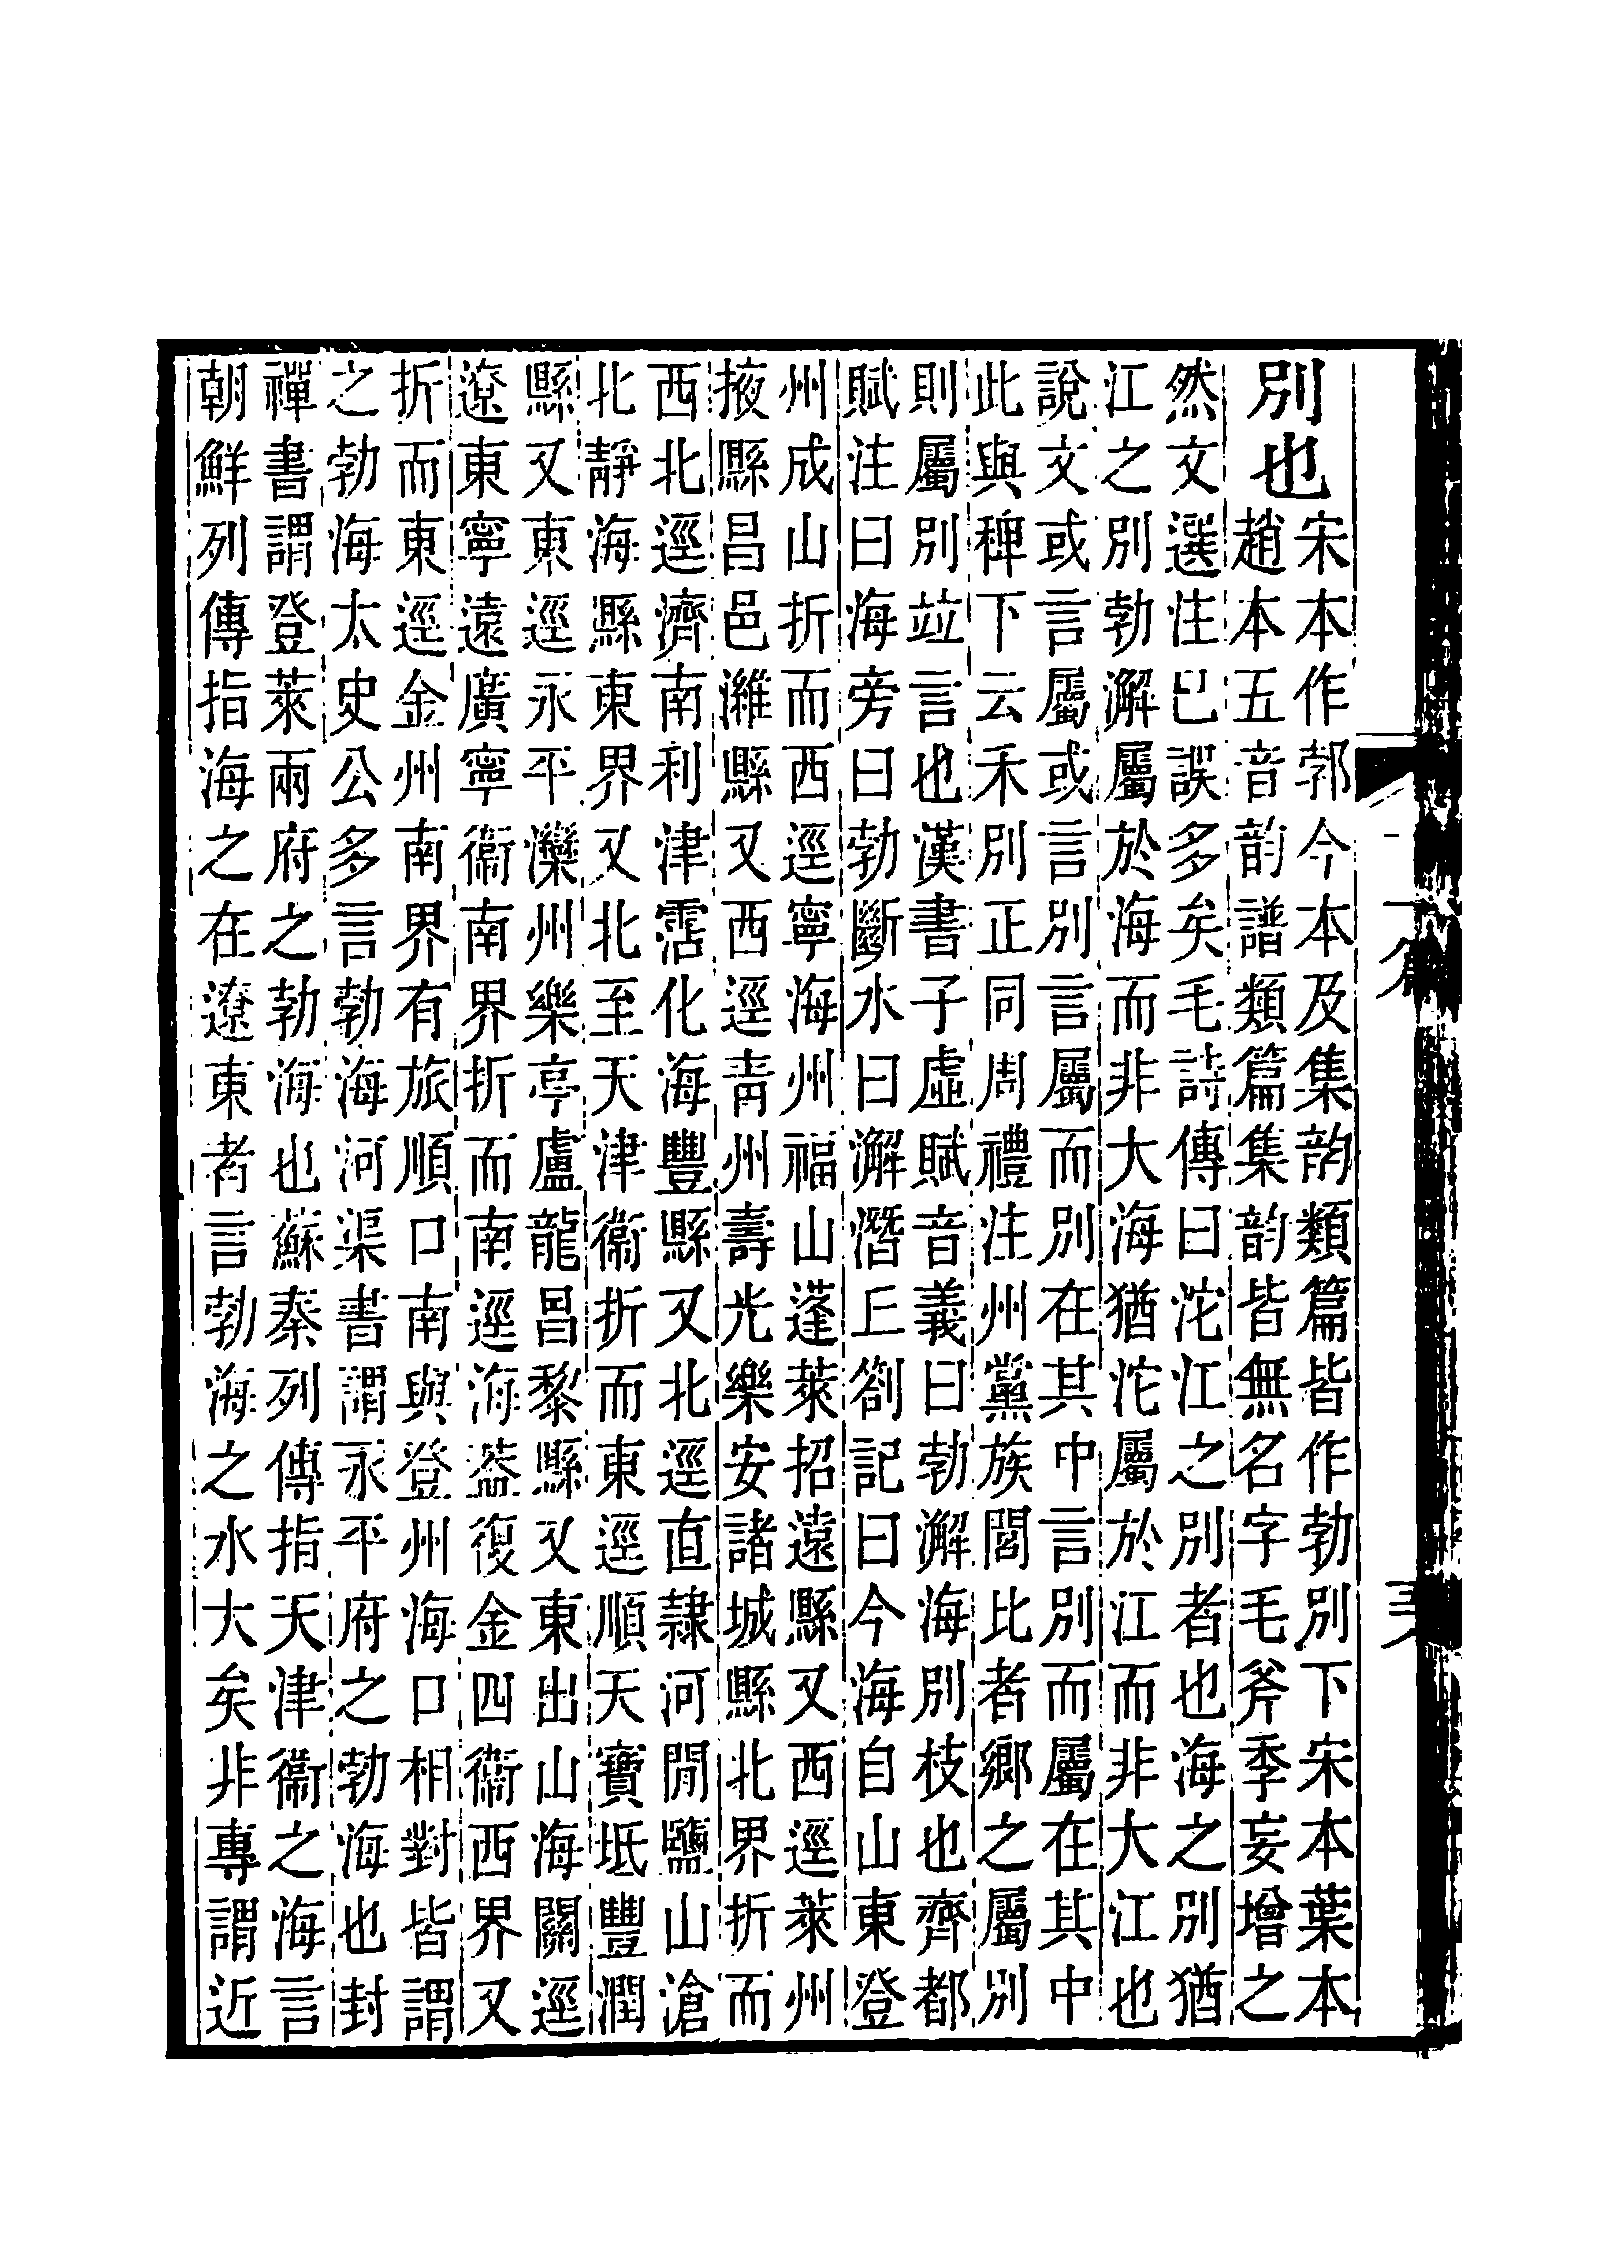 別也
宋本作郣今本及集韵類篇皆作勃別下宋本葉本
趙本五音韵譜類篇集韵皆無名字毛斧季妄增之
然文選注巳誤多矣毛詩傳曰沱江之別者也海之別猶
江之別勃澥屬於海而非大海猶沱屬於江而非大江也
說文或言屬或言別言屬而別在其中言別而屬在其中
此與稗下云禾別正同周禮注州黨族閭比者鄉之屬別
則屬別竝言也漢書子虛賦音義曰勃澥海別枝也齊都
賦注曰海旁曰勃斷水曰澥潛丘劄記曰今海自山東登
州成山折而西逕寧海州福山蓬萊招遠縣又西逕萊州
掖縣昌邑濰縣又西逕靑州壽光樂安諸城縣北界折而
西北逕濟南利津霑化海豐縣又北逕直隷河閒鹽山滄
北靜海縣東界又北至天津衞折而東逕順天寶坻豐潤
縣又東逕永平灤州樂亭盧龍昌黎縣又東出山海關逕
遼東寧遠廣寧衞南界折而南逕海葢復金四衞西界又
折而東逕金州南界有旅順口南與登州海口相對皆謂
之勃海太史公多言勃海河渠書謂永平府之勃海也封
禪書謂登萊兩府之勃海也蘇秦列傳指天津衞之海言
朝鮮列傳指海之在遼東者言勃海之水大矣非專謂近